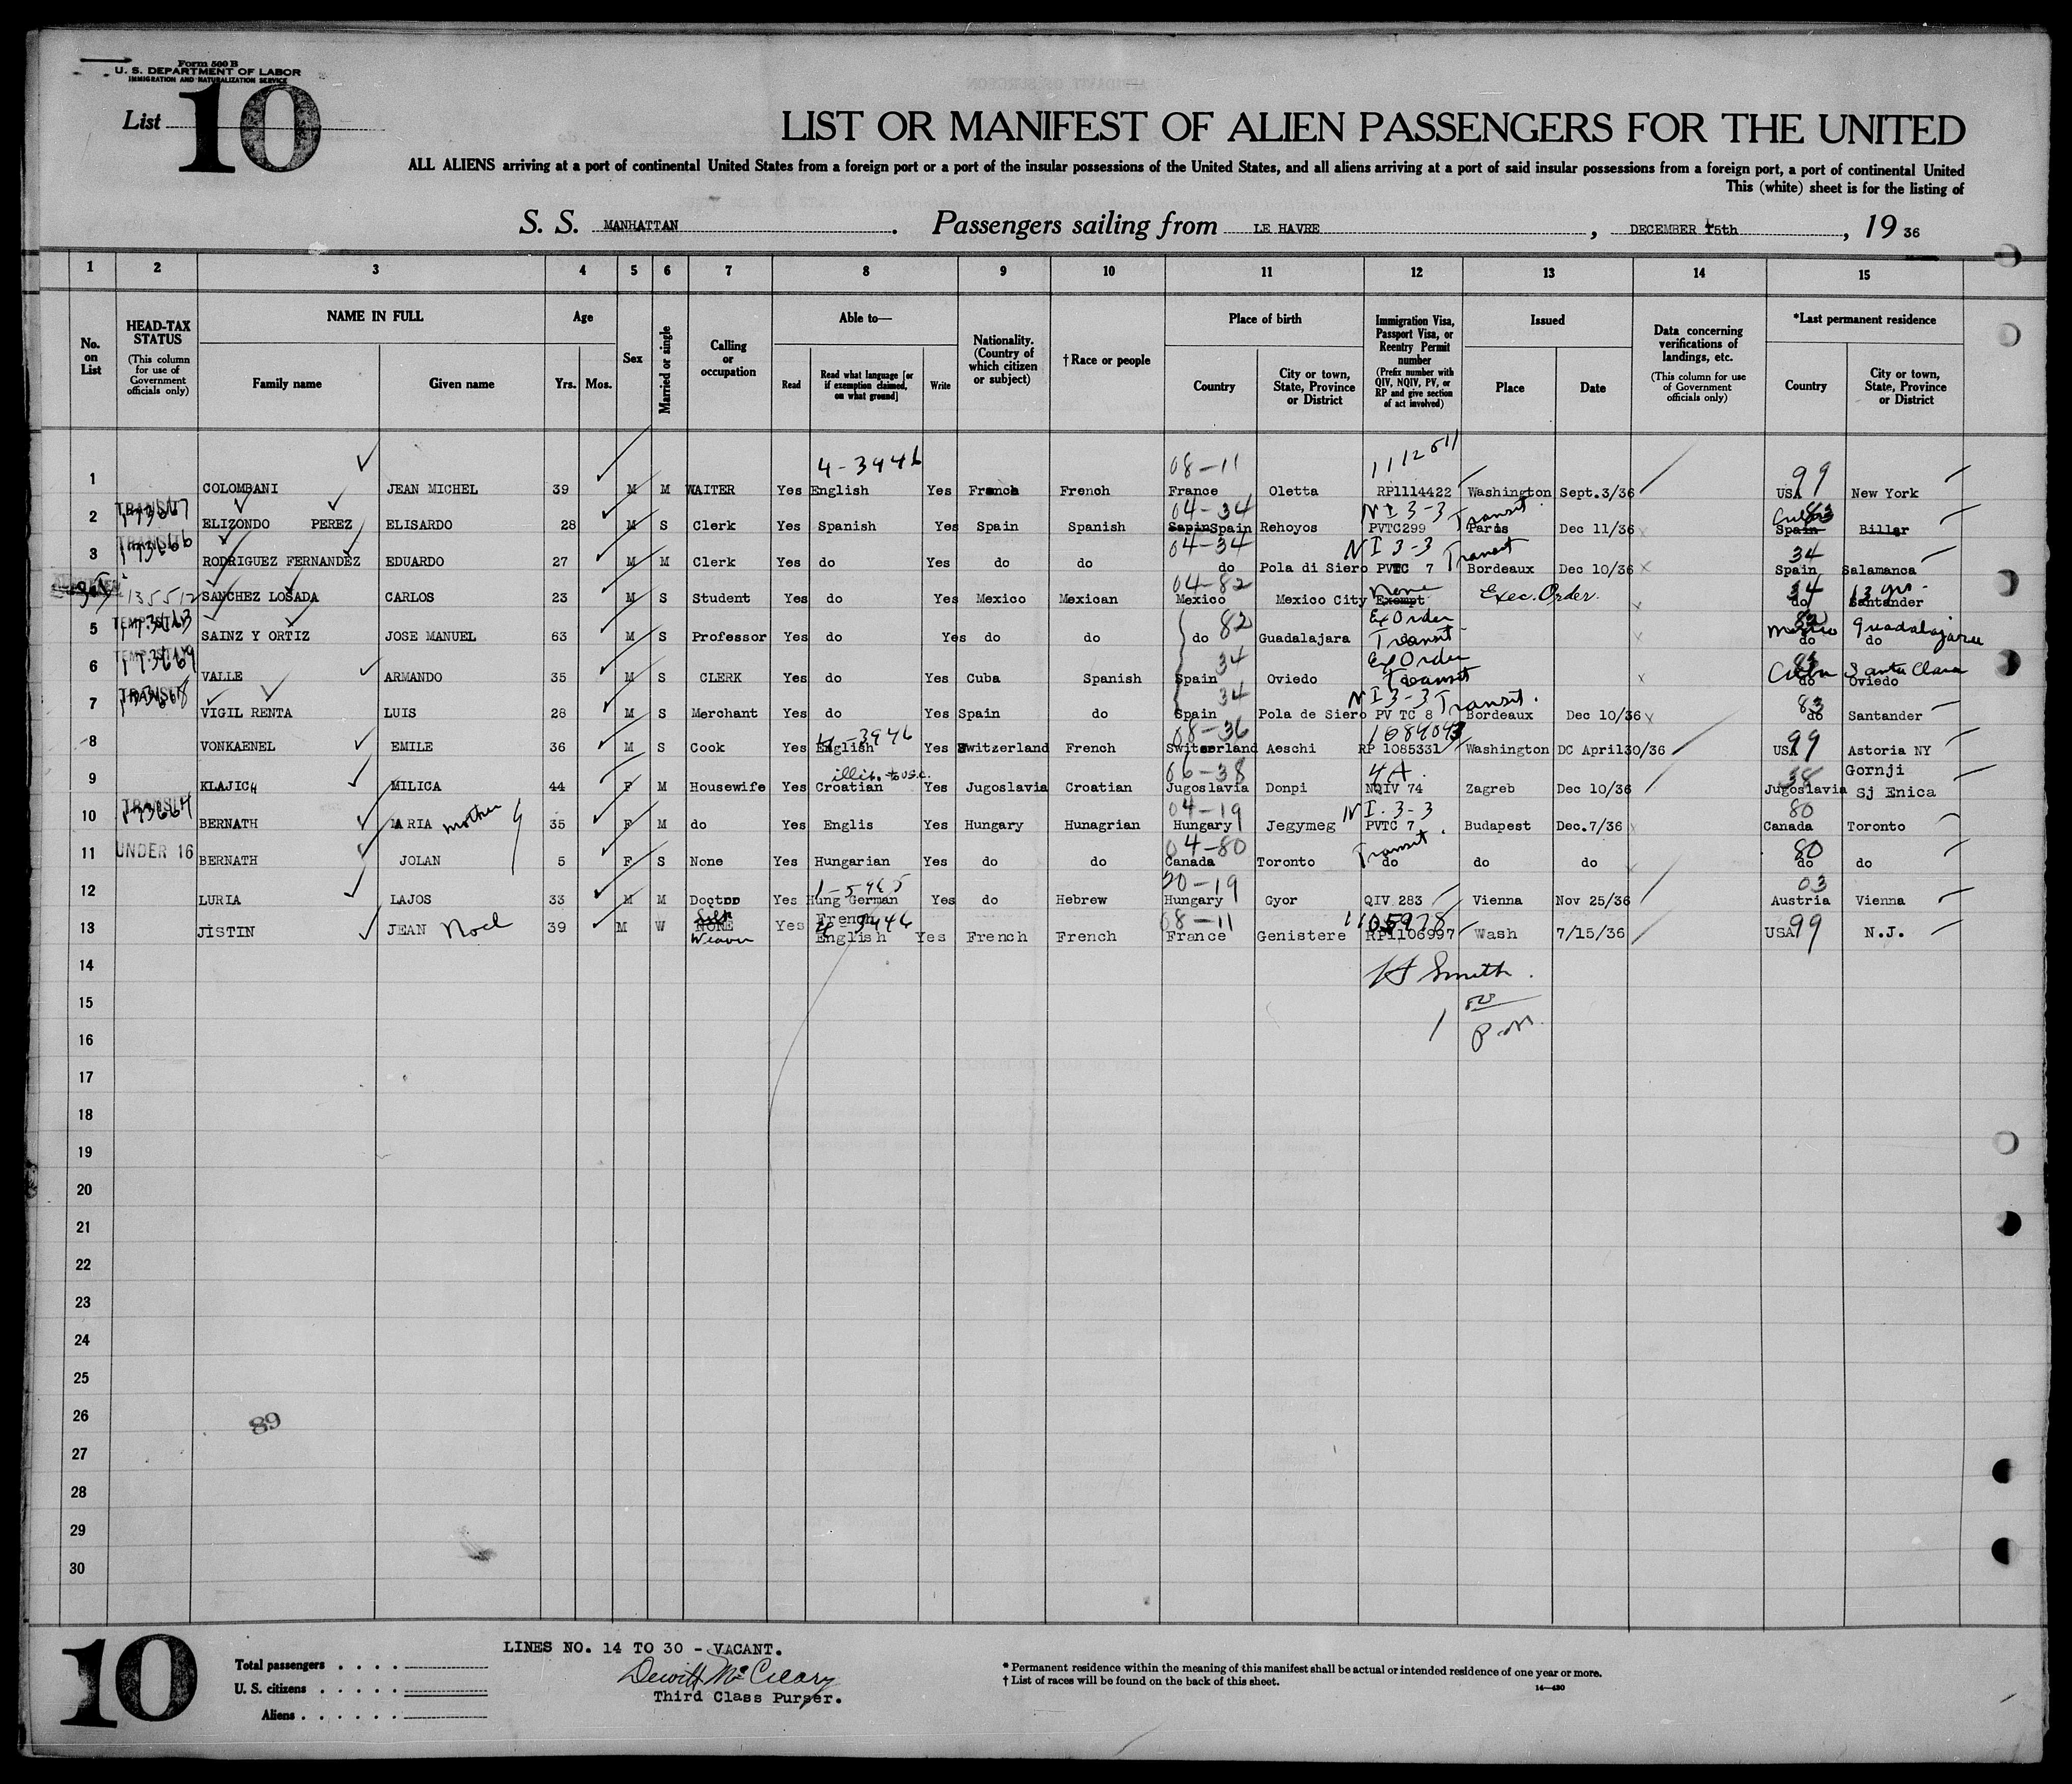 Form 500 B
U. S. DEPARTMENT OF LABOR
IMMIGRATION AND NATURALIZATION SERVICE
List 10
LIST OR MANIFEST OF ALIEN PASSENGERS FOR THE UNITED
ALL ALIENS arriving at a port of continental United States from a foreign port or a port of the insular possessions of the United States, and all aliens arriving at a port of said insular possessions from a foreign port, a port of continental United
This (white) sheet is for the listing of
S. S. MANHATTAN. Passengers sailing from LE HAVRE, DECEMBER 15th, 19 36
1 2 3 4 5 6 7 8 9 10 11 12 13 14 15
No. on List
HEAD-TAX STATUS (This column for use of Government officials only)
NAME IN FULL Family name Given name
Age Yrs. Mos.
Sex
Married or single
Calling or occupation
Able to— Read Read what language [or if exemption claimed, on what ground] Write
Nationality. (Country of which citizen or subject)
†Race or people
Place of birth Country City or town, State, Province or District
Immigration Visa, Passport Visa, or Reentry Permit number (Prefix number with QIV, NQIV, PV, or RP and give section of act involved)
Issued Place Date
Data concerning verifications of landings, etc. (This column for use of Government officials only)
*Last permanent residence Country City or town, State, Province or District
4-3946 08-11 1112511 99
1 COLOMBANI JEAN MICHEL 39 M M WAITER Yes English Yes French French France Oletta RP1114422 Washington Sept.3/36 USA New York
TRANSIT 04-34 NI 3-3 Transit Cuba 83
2 ELIZONDO PEREZ ELISARDO 28 M S Clerk Yes Spanish Yes Spain Spanish Sapin Spain Rehoyos PVTC299 Paris Dec 11/36 Spain Biller
TRANSIT 173666 04-34 NI 3-3 Transit 34
3 RODRIGUEZ FERNANDEZ EDUARDO 27 M M Clerk Yes do Yes do do do Pola di Siero PVTC 7 Bordeaux Dec 10/36 Spain Salamanca
135512 04-82 None Exec. Order. 34 13 yrs
SANCHEZ LOSADA CARLOS 23 M S Student Yes do Yes Mexico Mexican Mexico Mexico City Exempt do Santander
TEMP. STAY 82 Ex Order Transit 82 Mexico Guadalajara
5 SAINZ Y ORTIZ JOSE MANUEL 63 M S Professor Yes do Yes do do do Guadalajara do do
TEMP. STAY 173669 34 Ex Order Transit 83 Cuba Santa Clara
6 VALLE ARMANDO 35 M S CLERK Yes do Yes Cuba Spanish Spain Oviedo do Oviedo
TRANSIT 173668 34 NI 3-3 Transit. 83
7 VIGIL RENTA LUIS 28 M S Merchant Yes do Yes Spain do Spain Pola de Siero PV TC 8 Bordeaux Dec 10/36 do Santander
4-3946 08-36 1084043 99
8 VONKAENEL EMILE 36 M S Cook Yes English Yes Switzerland French Switzerland Aeschi RP 1085331 Washington DC April30/36 USA Astoria NY
illit. to U.S.C. 06-38 4A. 38 Gornji
9 KLAJICH MILICA 44 F M Housewife Yes Croatian Yes Jugoslavia Croatian Jugoslavia Donpi NQIV 74 Zagreb Dec 10/36 Jugoslavia Sj Enica
TRANSIT 173664 mother 04-19 NI. 3-3 80
10 BERNATH MARIA 35 F M do Yes Englis Yes Hungary Hunagrian Hungary Jegymeg PVTC 7 Budapest Dec.7/36 Canada Toronto
UNDER 16 04-80 Transit 80
11 BERNATH JOLAN 5 F S None Yes Hungarian Yes do do Canada Toronto do do do do do
1-5965 20-19 03
12 LURIA LAJOS 33 M M Doctor Yes Hung German Yes do Hebrew Hungary Gyor QIV 283 Vienna Nov 25/36 Austria Vienna
Silk French 4-3946 08-11 1105978
13 JISTIN JEAN Noel 39 M W NONE Weaver Yes English Yes French French France Genistere RP1106997 Wash 7/15/36 USA 99 N.J.
14 H Smith.
15 1 50
16 P.M.
17
18
19
20
21
22
23
24
25
26 89
27
28
29
30
10
LINES NO. 14 TO 30 - VACANT.
Dewitt McCleary
Third Class Purser.
Total passengers . . . .
U. S. citizens . . . . .
Aliens . . . . . .
* Permanent residence within the meaning of this manifest shall be actual or intended residence of one year or more.
† List of races will be found on the back of this sheet.
14—430